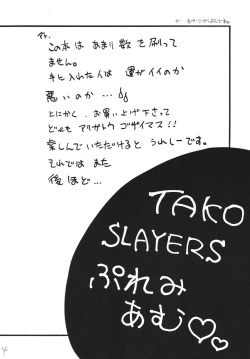 この本は あまり 数 を 刷って
ません。
手に入れた人は 運が イイのか
悪いのか…
とにかく、お買い上げ下さって
ど〜も アリガトウ ゴザイマス!!
楽しんでいただけると うれしーです。
それでは また
後ほど…
TAKO
SLAYERS
ぷれみ
あむ♡♡
4